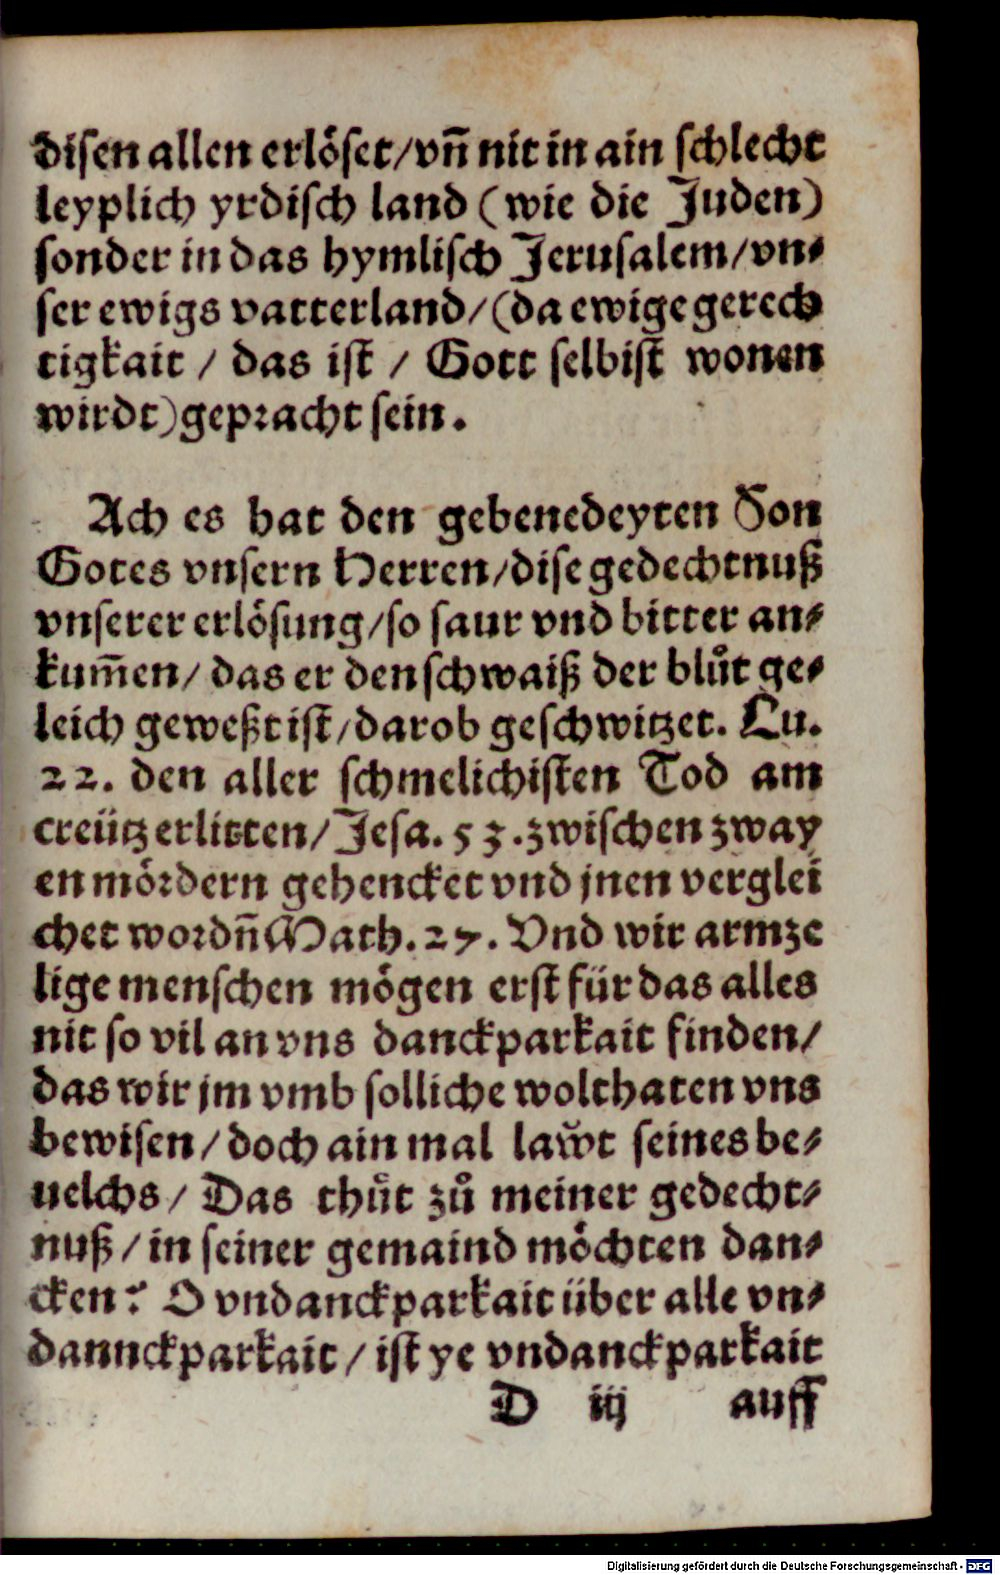 disen allen erlöset/vn̄ nit in ain schlecht
leyplich yrdisch land (wie die Juden)
sonder in das hymlisch Jerusalem/vn⸗
ser ewigs vatterland/(da ewige gerech
tigkait / das ist / Gott selbist wonen
wirdt)gepracht sein.
Ach es hat den gebenedeyten Son
Gotes vnsern Herren/dise gedechtnuß
vnserer erlösung/so saur vnd bitter an⸗
kum̄en/ das er den schwaiß der blůt ge⸗
leich geweßt ist/darob geschwitzet. Lu.
22. den aller schmelichisten Tod am
creütz erlitten/Jesa.53.zwischen zway
en mördern gehencket vnd jnen verglei
chet wordn̄ Math.27. Vnd wir armze
lige menschen mögen erst für das alles
nit so vil an vns danckparkait finden/
das wir jm vmb solliche wolthaten vns
bewisen/doch ain mal law̌t seines be⸗
uelchs/ Das thůt zů meiner gedecht⸗
nuß/in seiner gemaind möchten dan⸗
cken? O vndanckparkait über alle vn⸗
dannckparkait/ist ye vndanckparkait
D iij auff
Digitalisierung gefördert durch die Deutsche Forschungsgemeinschaft - DFG